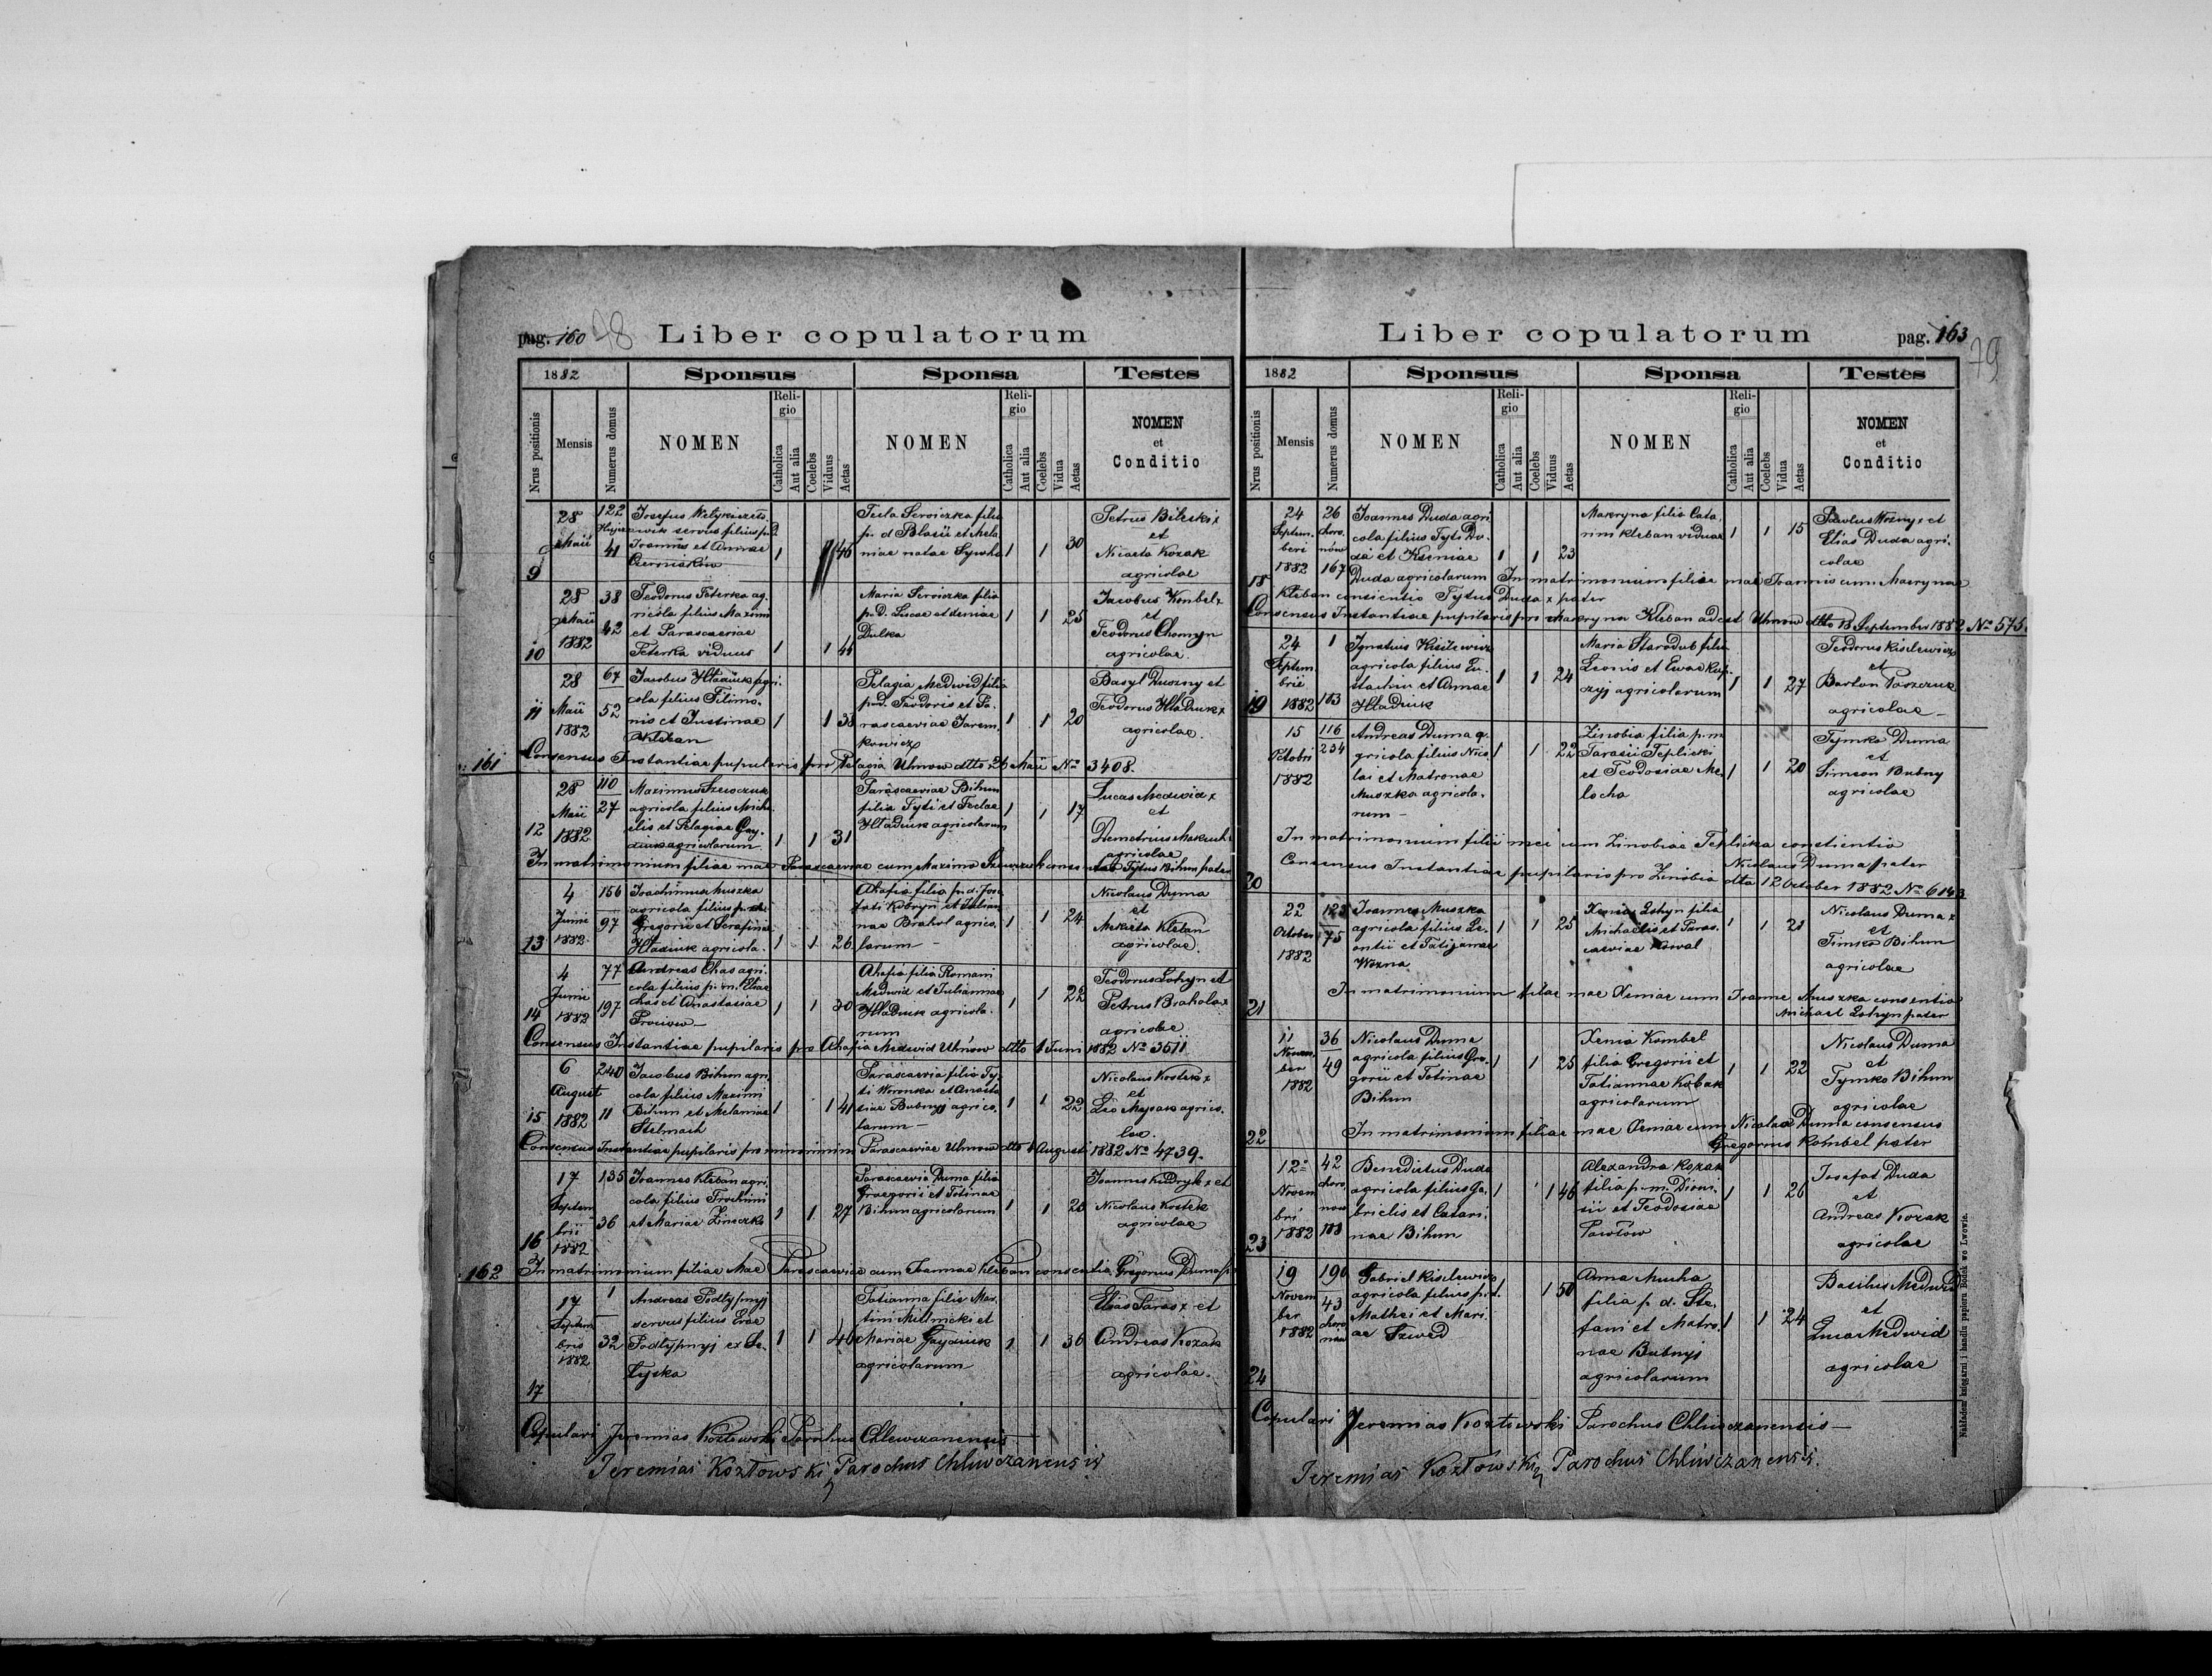 pag. 160 78 Liber copulatorum
1882 Sponsus Sponsa Testes
Nrus positionis Mensis Numerus domus NOMEN Religio Catholica Aut alia Coelebs Viduus Aetas NOMEN Religio Catholica Aut alia Coelebs Vidua Aetas NOMEN et Conditio
9
28 Maii
122
41
Josefus
servus filius p. d
Joannis et Annae
Czerniaków
1 1 46
Tecla Serviczka filia
p. d Blasii et Mela
niae natae
1 1 30
Petrus Bileski x
et
Nicaeta Kozak
agricolae
10
28
Maii
1882
38
42
Teodorus Peterka ag.
ricola filius Maximi
et Parascaeviae
Peterka viduus
1 1 46
Maria Serviczka filia
p. D. Lucae et
Dulka
1 1 25
Jacobus Konbel x
et
Teodorus Chomyn
agricolae.
11
28
Maii
1882
67
52
Jacobus Hladiuk agri.
cola filius Filimo.
nis et Justinae
Kleban
1 1 33
Pelagia Medwid filia
p. d. Teodoris et Pa.
rascaeviae Jarem.
kowicz
1 1 20
Basyl Duszny et
Teodorus Hladiuk x
agricolae.
161 Consensus Instantiae pupilaris pro Pelagia Uhnow dtto 26 Maii No 3408.
12
28
Maii
1882
110
27
Maximus Szewczuk
agricola filius Micha
elis et Pelagiae Gay.
diuk agricolarum.
1 1 31
Parascaeviae Bihun
filia Tyti et Teclae
Hladiuk agricolarum
1 1 17
Lucas Medwid x
et
Demetrius
agricolae
In matrimonium filiae mae Parascaeviae cum Maximo Szewczuk Tytus Bihun pater
13
4
Junii
1882.
156
97
Joachimus Muszka
agricola filius p. d
Gregorii et Serafinae
Hladiuk agricola.
1 1 26
Ahafia filia p. d. Josa
fati Kobryn et Julian
nae Brahol agrico.
larum –
1 1 24
Nicolaus Duma
et
Mekieta Kleban
agricolae
14
4
Junii
1882
77
197
Andreas Chas agri.
cola filius p. m. Eliae
Chas et Anastasiae
1 1 30
Ahafia filia Romani
Medwid et Juliannae
Hladiuk agricola.
rum
1 1 22
Teodorus Lohyn et
Petrus Brahola x
agricolae
Consensus Instantiae pupilaris pro Ahafia Medwid Uhnów dtto 1 Juni 1882 No 3511
15
6
August
1882
240
11
Jacobus Bihun agri.
cola filius Maximi
Bihun et Melaniae
Stelmach
1 1 41
Parascaevia filia Ty.
ti Woronka et Anasta
siae Bubnyj agrico.
larum –
1 1 22
Nicolaus Kostek x
et
Leo agrico.
lae.
Consensus Instantiae pupilaris pro Parascaeviae Uhnow dtto August 1882 No 4739.
16
17
Septem
brii
1882
135
36
Joannes Kleban agri.
cola filius Trochimi
et Mariae
1 1 27
Parascaevia Duma filia
Graegorii et Totinae
Bihun agricolarum
1 1 26
Joannes Kudryk x et
Nicolaus Kostek
agricolae
162 In matrimonium filiae Mae Parascaeviae cum Joannae Kleban consentia Gregorius Duma
17
17
Septem
bris
1882
1
32
Andreas Podtypnyj
servus filius Evae
Podtypnyj ex
1 1 40
Tatianna filia Mar.
tini Milnicki et
Mariae Gaydiuk
agricolarum
1 1 36
Elias Taras x et
Andreas Kozak
agricolae.
Copulavi Jeremias Kozlowski Parochus Chlewczanensis
Jeremias Kozłowski Parochus Chliwczanensis
Liber copulatorum pag. 163 79
1882 Sponsus Sponsa Testes
Nrus positionis Mensis Numerus domus NOMEN Religio Catholica Aut alia Coelebs Viduus Aetas NOMEN Religio Catholica Aut alia Coelebs Vidua Aetas NOMEN et Conditio
18
24
Septem.
beri
1882
26
choro.
nów
167
Joannes Duda agri
cola filius Tyti Du.
da et Kseniae
Duda agricolarum
1 1 23
Makryna filia Cata.
rini Kleban viduae
1 1 15
Paulus Wozny x et
Elias Duda agri.
colae
In matrimonium filiae mae Joannis cum Macryna
Kleban consientio Tytus Duda x pater
Consensus Instantiae pupilaris pro Makryna Kleban adest Uhnow dtto 18 September 1882 No 575.
19
24
Septem
brii
1882
1
183
Ignatius Kisilewicz
agricola filius Eu.
stachii et Annae
Hladiuk
1 1 24
Maria Starodub filia
Leonis et Evae
agricolarum
1 1 27
Teodorus Kisilewicz x
et
Barton Paszczuk
agricolae –
20
15
Octobri
1882
116
234
Andreas Duma a.
gricola filius Nico.
lai et Matronae
Muszka agricola.
rum –
1 1 22
Zinobia filia p. m
Tarasii Teplicki
et Teodosiae Me.
locha
1 1 20
Tymko Duma
et
Simeon Bubny
agricolae
In matrimonium filii mei cum Zinobiae Teplicka constientia
Nicolaus Duma pater
Consensus Instantiae pupilaris pro Zinobia dtto 12 October 1882 No 6143
21
22
October
1882
128
75
Joannes Muszka
agricola filius Le.
ontii et Tatijannae
Wozna
1 1 25
Xenia Lohyn filia
Michaelis et Paras.
caeviae Kowal
1 1 21
Nicolaus Duma x
et
Timko Bihun
agricolae
In matrimonium filae mae Xeniae cum Joanne Muszka consentio
Michael Lohyn pater
22
11
Novem.
ber
1882
36
49
Nicolaus Duma
agricola filius Gre.
gorii et Totinae
Bihun
1 1 25
Xenia Kombel
filia Gregorii et
Tatiannae Kozak
agricolarum
1 1 22
Nicolaus Duma
et
Tymko Bihun
agricolae
In matrimonium filiae mae Xeniae cum Nicolao Duma consensus
Gregorius Kombel pater
23
12
Novem
bri
1882
42
choro
now
188
Benedictus Duda
agricola filius Ga.
brielis et Catari.
nae Bihun
1 1 46
Alexandra Kozak
filia p. m. Dioni.
sii et Teodosiae
Pawłow
1 1 26
Josafat Duda
et
Andreas Kozak
agricolae
24
19
Novem
ber
1882
190
43
choro
now
Gabriel Kisilewicz
agricola filius p. d.
Mathei et Mari.
ae Szwed
1 50
Anna Mucha
filia p. d. Ste.
fani et Matro.
nae Bubnyj
agricolarum
1 1 24
Basilius Medwid
et
Lucas Medwid
agricolae
Copulavi Jeremias Kozłowski Parochus Chliwczanensis –
Jeremias Kozłowski Parochus Chliwczanensis.
Nakładem księgarni i handlu papieru Bodek we Lwowie.